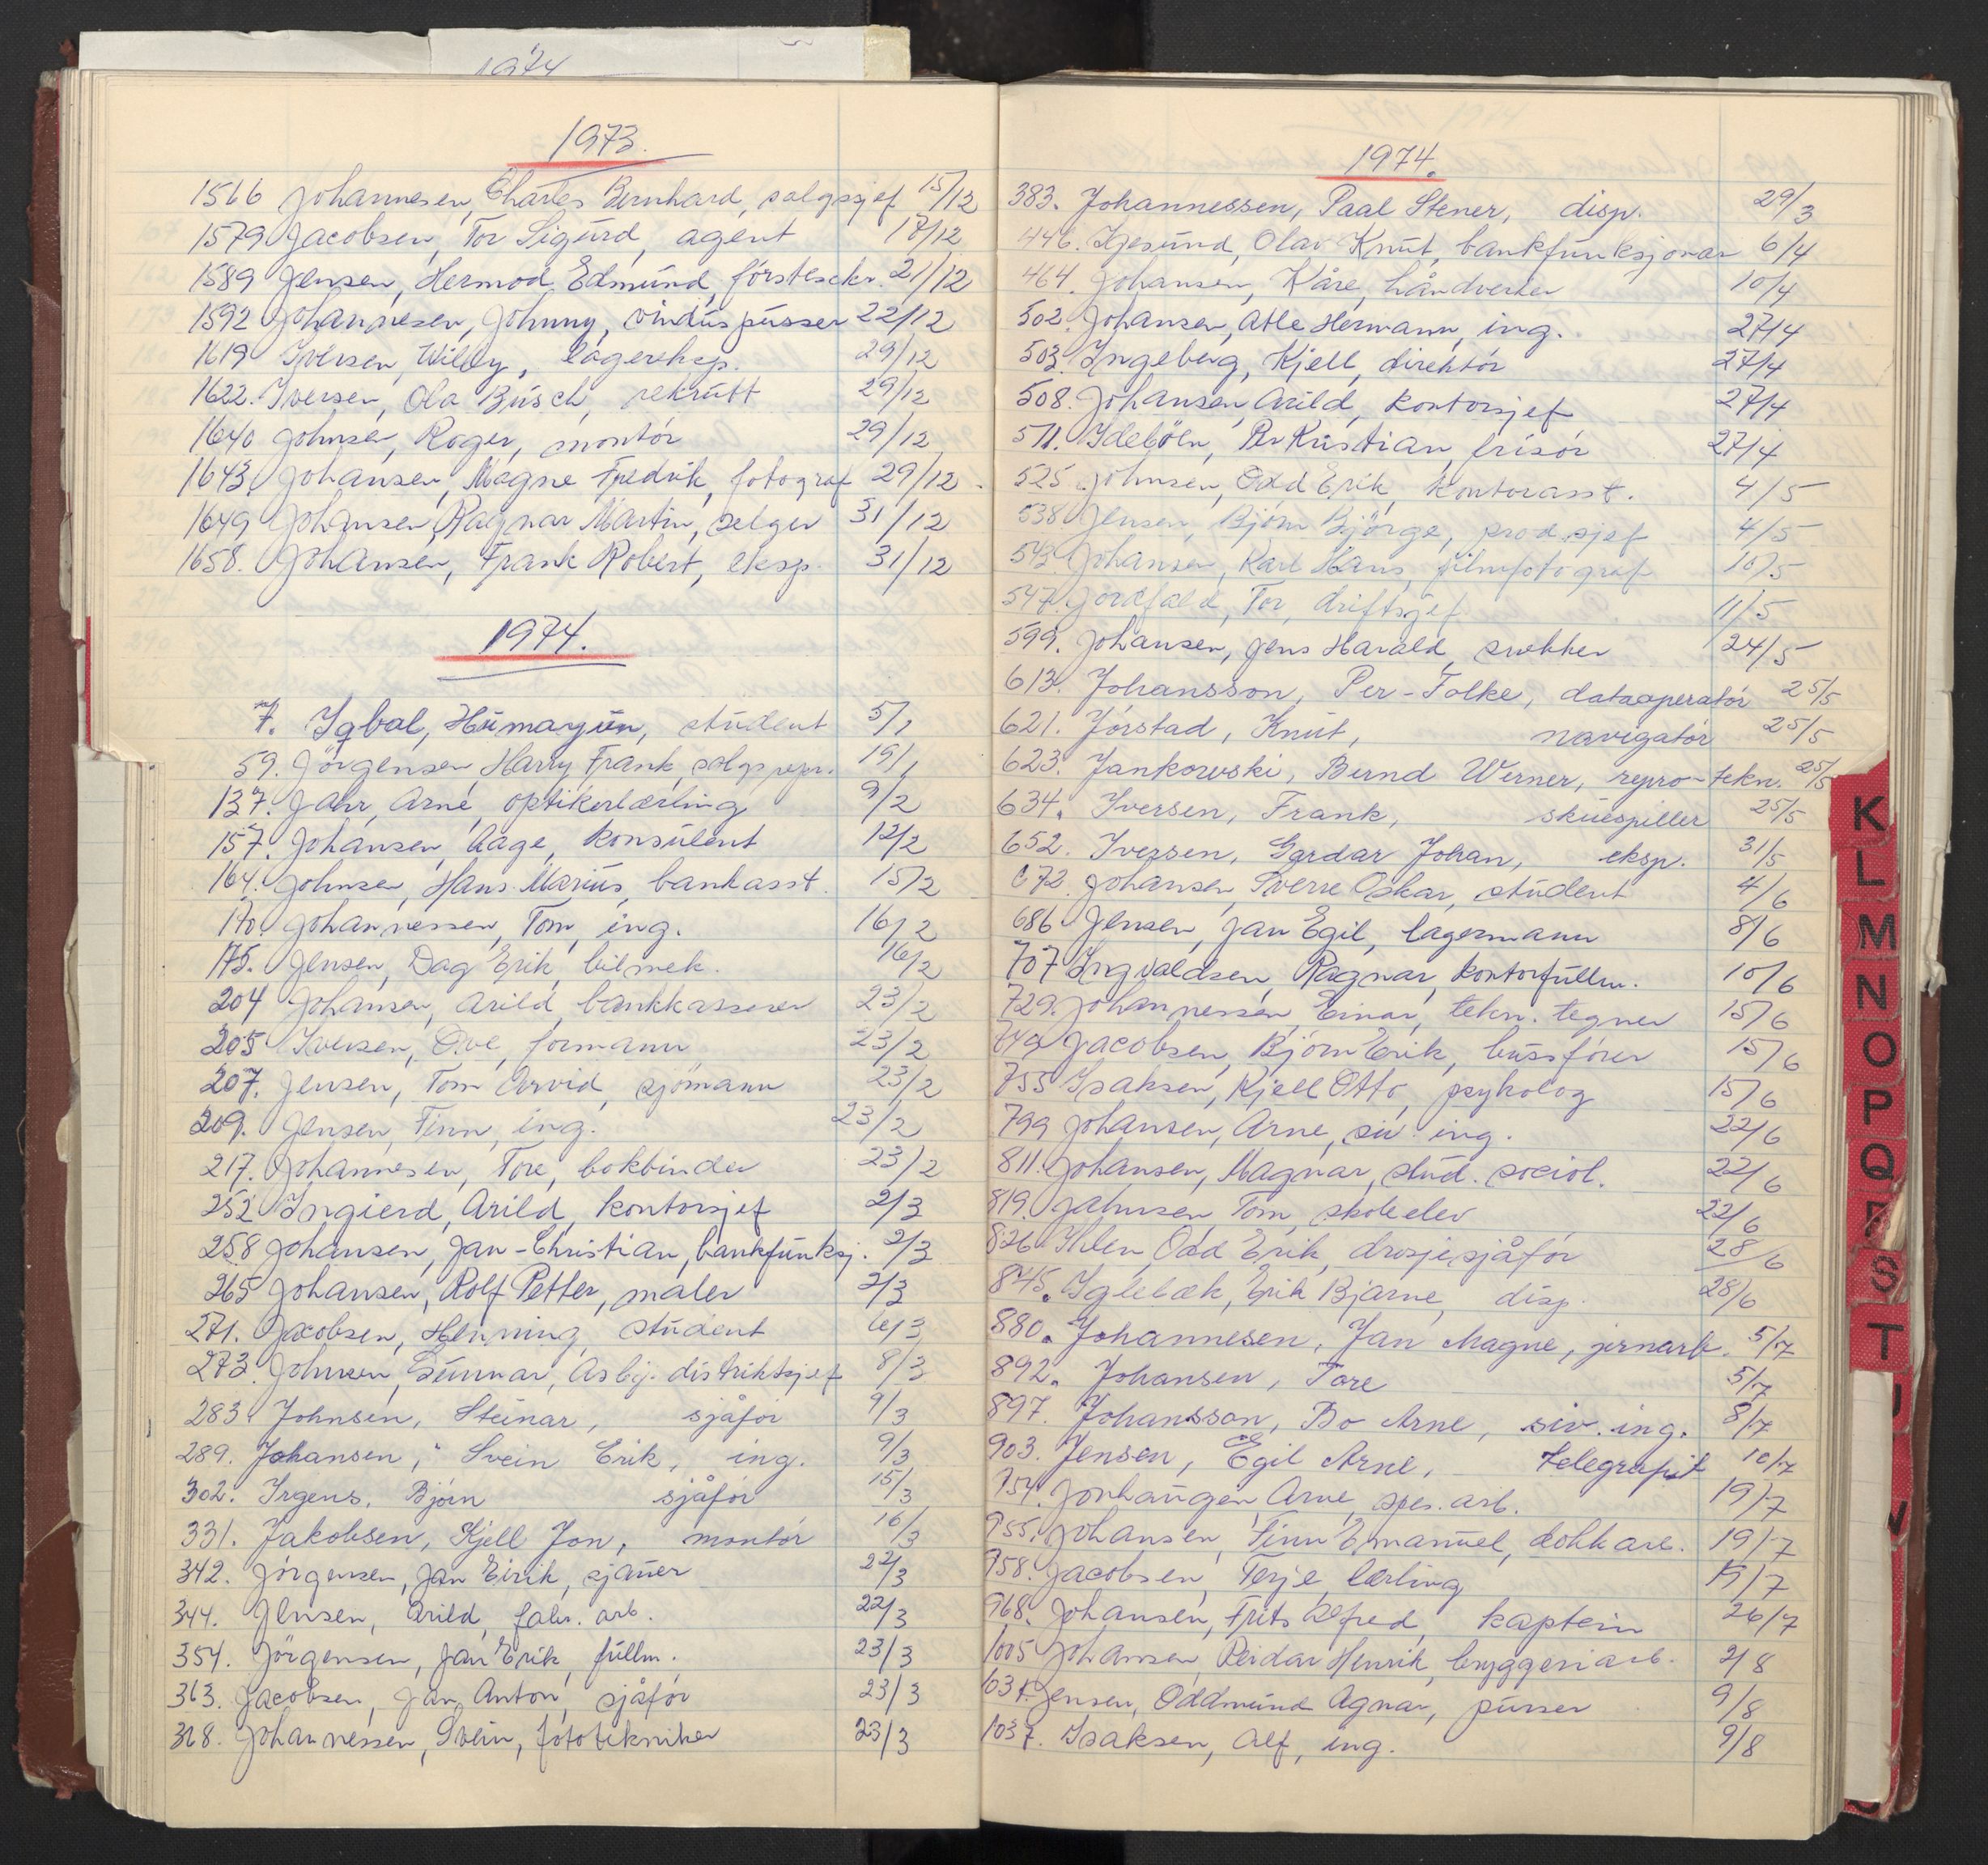 1974
1973.
1566 Johannesen, Charles Bernhard, salgssjef 15/12
1579 Jacobsen, Tor Sigurd, agent 17/12
1589 Jensen, Hermod Edmund, førstesekr. 21/12
1592 Johannesen, Johnny, vinduspusser 22/12
1619 Iversen, Willy, lagereksp. 29/12
1622. Iversen, Ola Busch, rekrutt 29/12
1640 Johnsen, Roger, montør 29/12
1643. Johansen, Magne Fredrik, fotograf 29/12
1649 Johansen, Ragnar Martin, selger 31/12
1658. Johansen, Frank Robert, eksp. 31/12
1974.
7. Iqbal, Humayun, student 5/1
59. Jörgensen, Harry Frank, salgsrepr. 19/1
137. Jahr, Arne, optikerlærling 9/2
157. Johansen, Aage, konsulent 12/2
164. Johnsen, Hans Marius, bankasst. 15/2
170. Johannessen, Tom, ing. 16/2
175. Jensen, Dag Erik, bilmek. 16/2
204 Johansen, Arild, bankkasserer 23/2
205 Iversen, Ove, formann 23/2
207. Jensen, Tom Arvid, sjömann 23/2
209. Jensen, Finn, ing. 23/2
217. Johannesen, Tore, bokbinder 23/2
252 Ingierd, Arild, kontorsjef 2/3
258 Johansen, Jan-Christian, bankfunksj. 2/3
265 Johansen, Rolf Petter, maler 2/3
271. Jacobsen, Henning, student 6/3
273. Johnsen, Gunnar, Asbj. distriktsjef 8/3
283. Johnsen, Steinar, sjåfør 9/3
289. Johansen, Svein Erik, ing. 9/3
302. Irgens, Bjørn sjåfør 15/3
331. Jakobsen, Kjell Jon, montør 16/3
342. Jørgensen, Jan Eirik, sjauer 22/3
344. Jensen, Arild, fabr. arb. 22/3
354. Jörgensen, Jan Erik, fullm. 23/3
363. Jacobsen, Jan Anton, sjåfør 23/3
368. Johannessen, Svein, fototekniker 23/3
1974.
383. Johannessen, Paal Stener, disp. 29/3
446. Igesund, Olav Knut, bankfunksjonær 6/4
464. Johansen, Kåre, håndverker 10/4
502. Johansen, Atle Hermann, ing. 27/4
503. Ingeberg, Kjell, direktør 27/4
508. Johansen, Arild, kontorsjef 27/4
511. Idebøln, Per Kristian, frisør 27/4
525. Johnsen, Odd Erik, kontorasst. 4/5
538 Jensen, Bjørn Bjørge, prod.sjef 4/5
543. Johansen, Karl Hans, filmfotograf 10/5
547. Jordfald, Tor, driftsjef 11/5
599. Johansen, Jens Harald, snekker 24/5
613. Johansson, Per-Folke, dataoperatør 25/5
621. Jørstad, Knut, navigatør 25/5
623. Jankowski, Bernd Werner, repro-tekn. 25/5
634. Iversen, Frank, skuespiller 25/5
652. Iversen, Gardar Johan, eksp. 31/5
672. Johansen, Sverre Oskar, student 4/6
686 Jensen, Jan Egil, lagermann 8/6
707 Ingvaldsen, Ragnar, kontorfullm. 10/6
729. Johannessen, Einar, tekn. tegner 15/6
749 Jacobsen, Bjørn Erik, bussfører 15/6
755 Isaksen, Kjell Otto, psykolog 15/6
799 Johansen, Arne, siv. ing. 22/6
811. Johansen, Magnar, stud. sociol. 22/6
819. Jahnsen, Tom, skoleelev 22/6
826 Ihlen, Odd Erik, drosjesjåfør 28/6
845. Iglebæk, Erik Bjarne, disp. 28/6
880. Johannesen, Jan Magne, jernarb. 5/7
892. Johansen, Tore 5/7
897. Johansson, Bo Arne, siv. ing. 8/7
903. Jensen, Egil Arne, telegrafist 10/7
954. Jonhaugen, Arne, spes. arb. 19/7
955. Johansen, Finn Emanuel, dokkarb. 19/7
958. Jacobsen, Terje, lærling 19/7
968. Johansen, Frits Alfred, kaptein 26/7
1005 Johansen, Reidar Henrik, bryggeriarb. 2/8
1031. Jensen, Oddmund Agnar, purser 9/8
1037. Isaksen, Alf, ing. 9/8
K
L
M
N
O
P
Q
S
T